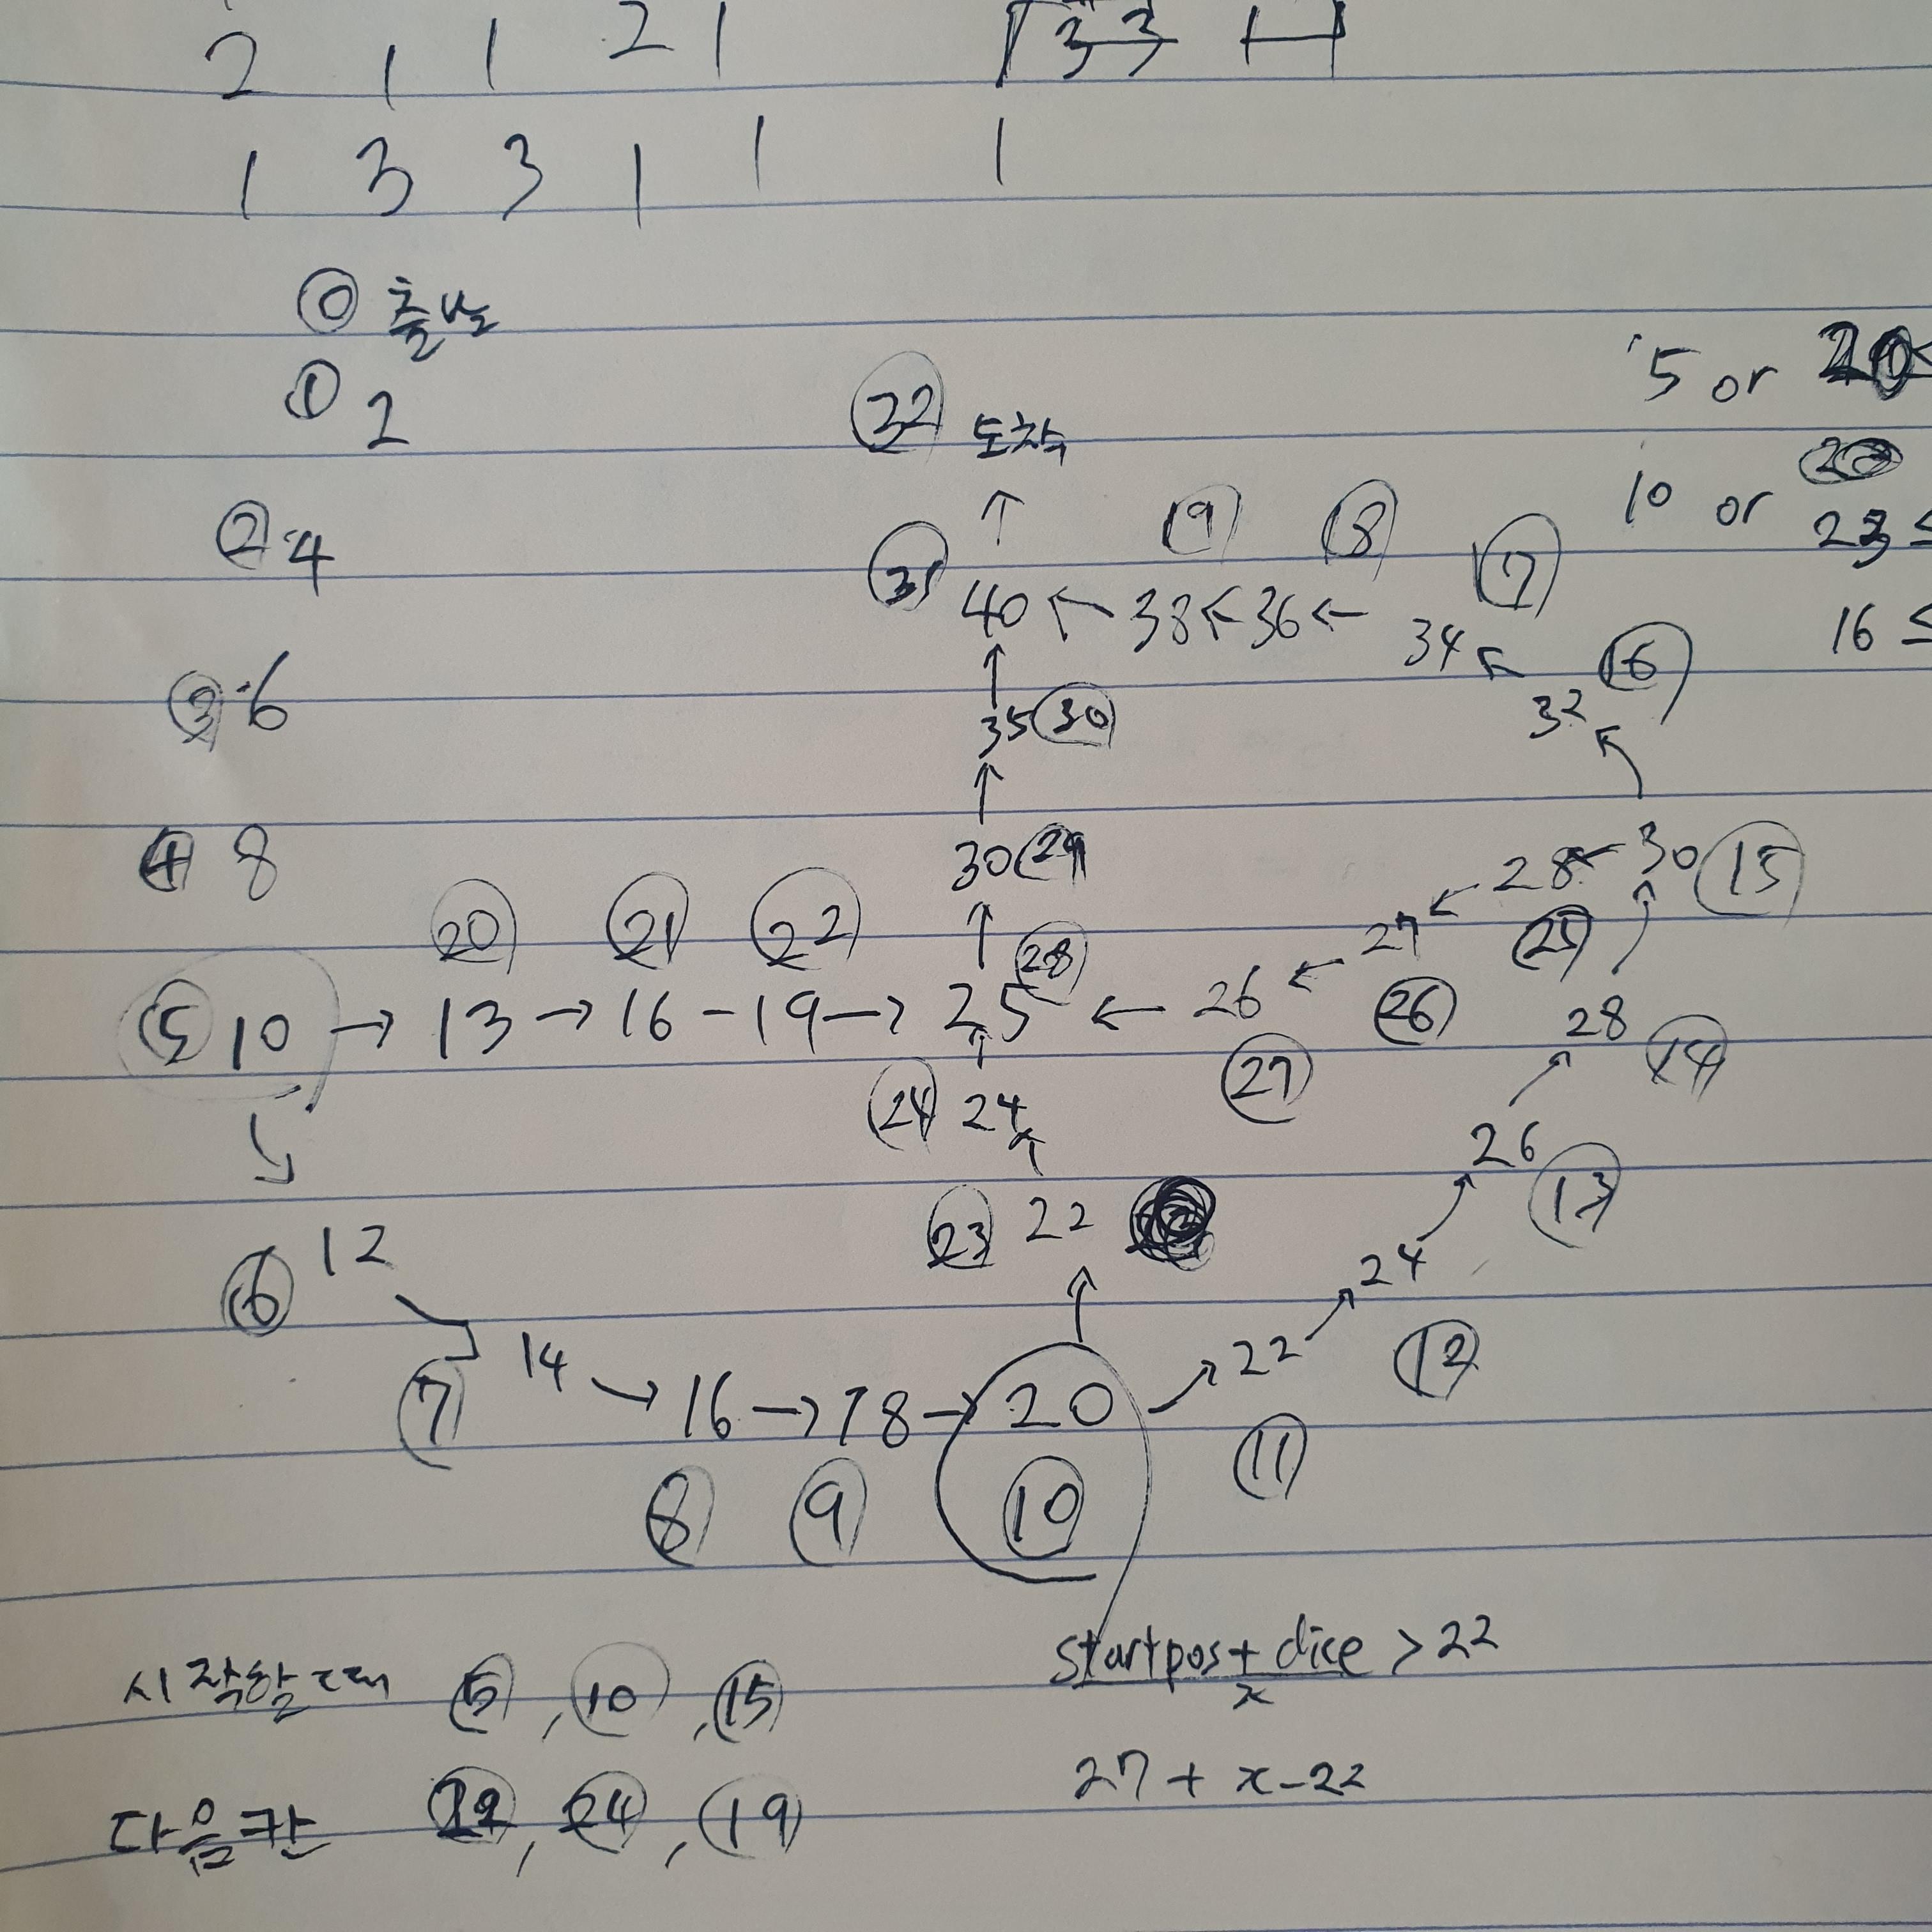 2 1 1 2 1 3 3 1
1 3 3 1 1 1
⓪ 출발
① 2
5 or
㉜ 도착
② 4
10 or
↑ ⑲ ⑱ 23 ≤
㉛ 40 ← 38 ← 36 ← 34 ⑰
16 ≤
↑ 32 ⑯
③ 6
35 ㉚
↑
④ 8 30 ㉙ 27 ← 28 ← 30 ⑮
⑳ ㉑ ㉒ ↑ ㉘ ㉕
⑤ 10 → 13 → 16 - 19 → 25 ← 26 ← ㉖ 28 ⑭
↑ ㉗
㉔ 24
26 ⑬
㉓ 22
⑥ 12 ↑ 24 ⑫
⑦ 14 → 16 → 18 → 20 → 22
⑧ ⑨ ⑩ ⑪
startpos + dice > 22
x
시작할 때 ⑤ , ⑩ , ⑮
27 + x - 22
다음칸 , ㉔ , ⑲